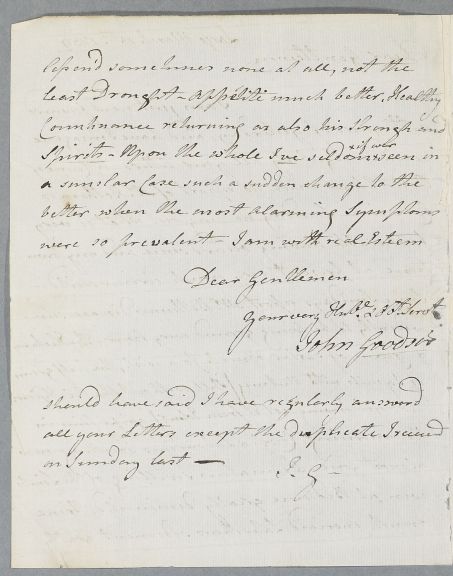 sometimes none at all, not the
least Drought - Appetite much better, Healthy
Countinance returning as also his strength and
Spirits - Upon the whole I've seldom x seen in
x if ever
a similar Case such a sudden change to the
better when the most alarming Symptoms
were so prevalent - I am with real Esteem
Dear Gentlemen
Your very Hub.e & Ob.t Servt
John
should have said I have regularly answerd
all your Letters except the duplicate I recievd
on Sunday last —
J. G —